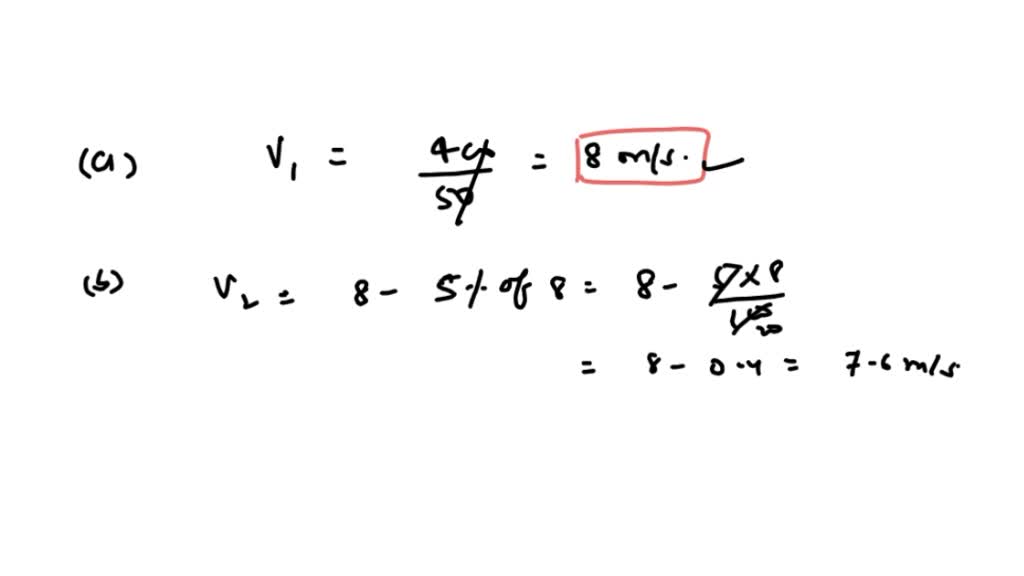 (a) V₁ = 400/50 = 8 m/s.
(b) V₂ = 8 - 5% of 8 = 8 - 5×8/100 20
= 8 - 0.4 = 7.6 m/s.